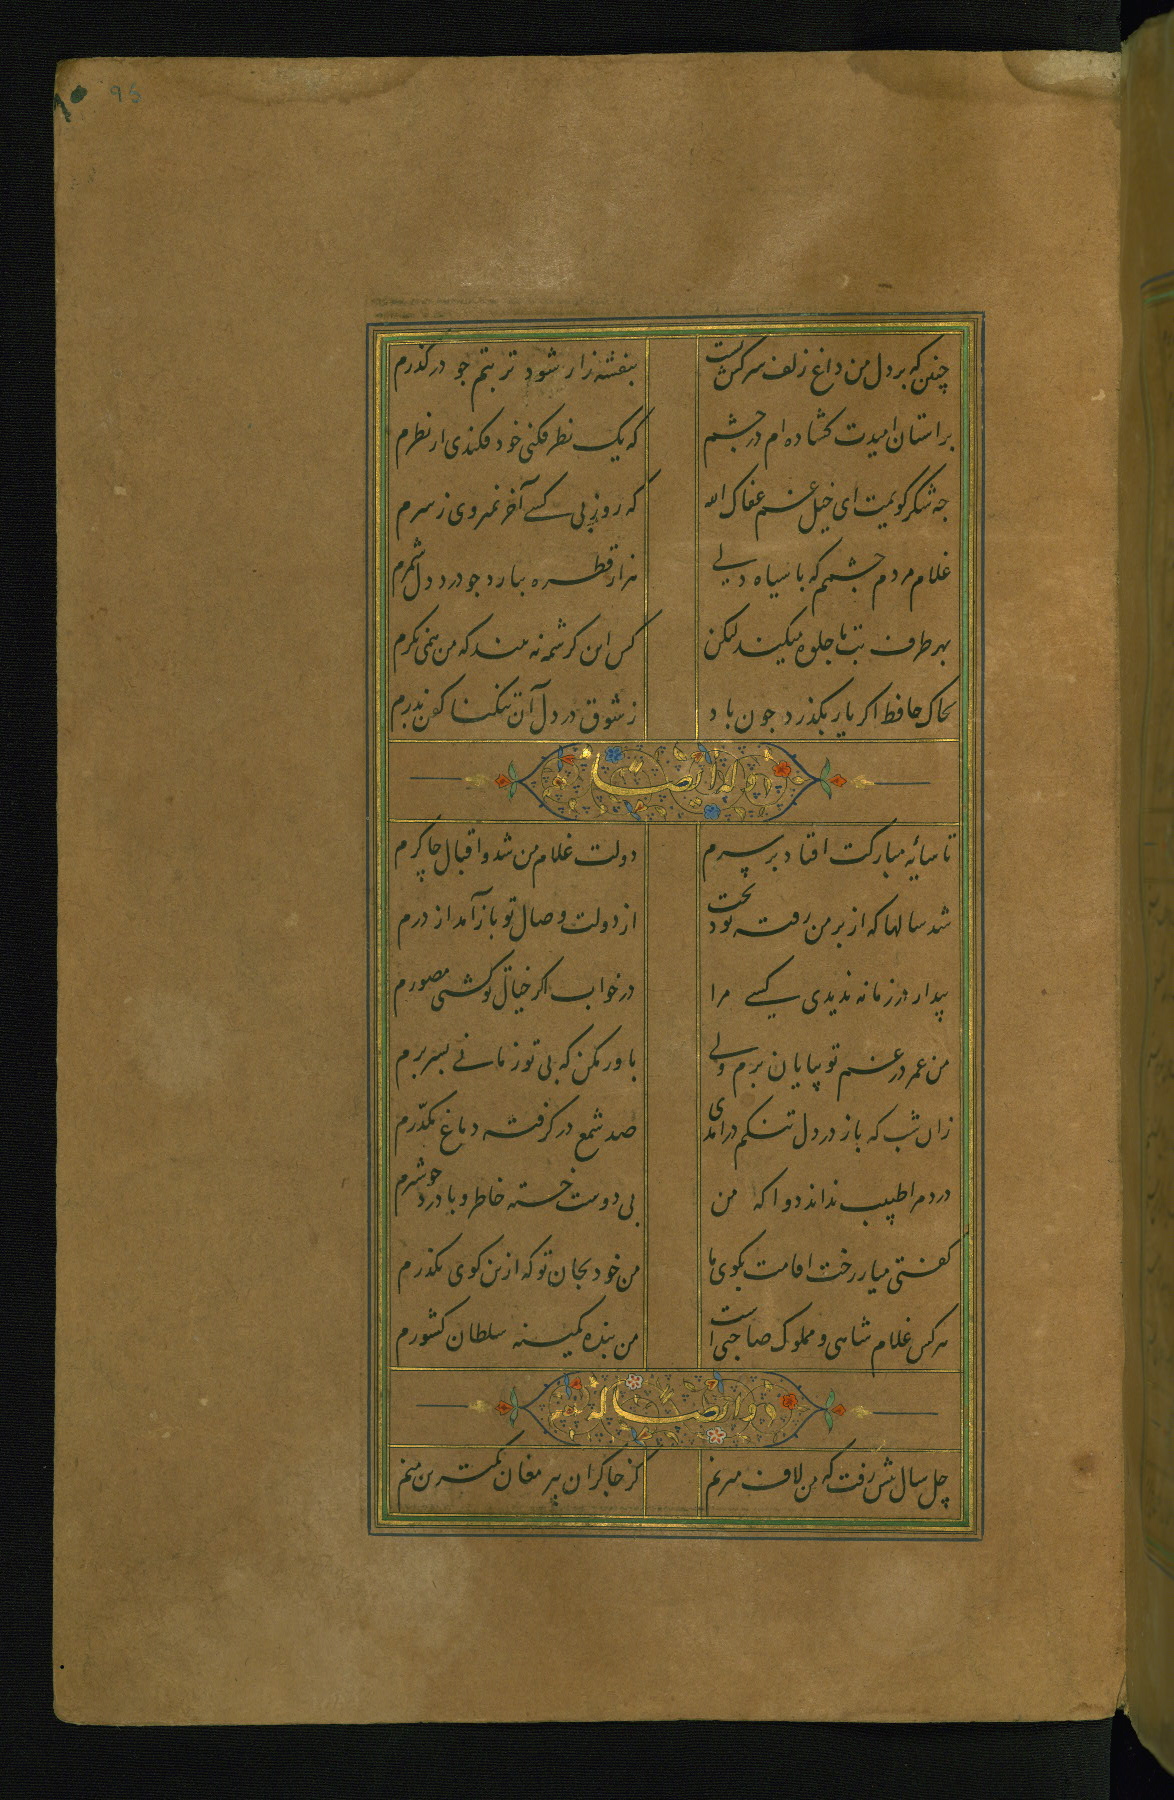 95
چنین که بر دل من داغ زلف سرکش تست بنفشه زار شود تربتم جو درکذرم
بر استان امیدت کشاده ام در جشم که یک نظر فکنی خود فکندی از نظرم
جه شکر کویمت ای خیل غم عفاک الله که روز بی کسی آخر نمیروی ز سرم
غلام مردم جشمم که با سیاه دلی هزار قطره ببارد جو درد دل شمرم
بهر طرف بت ما جلوه میکند لیکن کس این کرشمه نه بیند که من همی نکرم
بخاک حافظ اکر یار بکذرد جون باد ز شوق در دل آن تنکنا کفن بدرم
وله ایضا
تا سایۀ مبارکت افتاد بر سرم دولت غلام من شد و اقبال چاکرم
شد سالها که از بر من رفته بود بخت از دولت وصال تو باز آمد از درم
بیدار در زمانه ندیدی کسی مرا در خواب اکر خیال تو کشتی مصورم
من عمر در غم تو بپایان برم ولی باور مکن که بی تو زمانی بسر برم
زان شب که باز در دل تنکم درامدی صد شمع در کرفته دماغ مکدّرم
درد مرا طبیب نداند دوا که من بی دوست خسته خاطر و با درد خوشترم
کفتی میار رخت اقامت بکوی ما من خود بجان تو که ازین کوی بکذرم
هر کس غلام شاهی و مملوک صاحبی است من بنده کمینه سلطان کشورم
و ایضا له
چل سال بیش رفت که من لاف میزنم کز جاکران پیر مغان کمترین منم